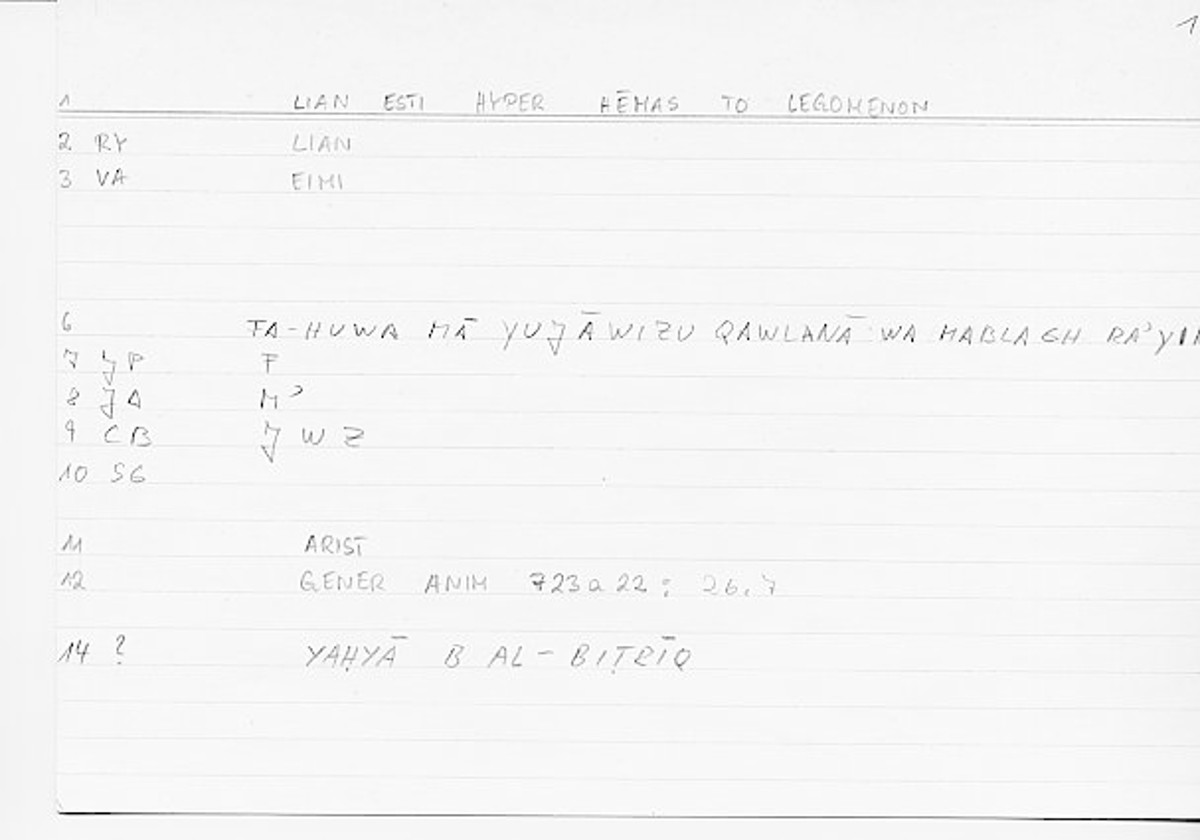 1
1 LIAN ESTI HYPER HĒMAS TO LEGOMENON
2 RY LIAN
3 VA EIMI
6 FA-HUWA MĀ YUJĀWIZU QAWLANĀ WA MABLAGH
7 JP F
8 JA Mʾ
9 CB J W Z
10 SG
11 ARIST
12 GENER ANIM 723a22; 26,7
14 ? YAḤYĀ B AL-BIṬRĪQ